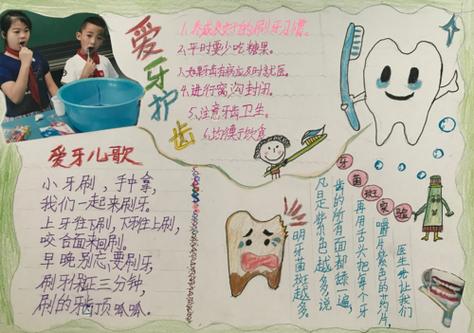 爱牙护齿
1.养成良好的刷牙习惯。
2.平时要少吃糖果。
3.如果牙齿有病应及时就医。
4.进行窝沟封闭。
5.注意牙齿卫生。
6.均衡饮食
爱牙儿歌
小牙刷,手中拿,
我们一起来刷牙。
上牙往下刷,下牙往上刷,
咬合面来回刷。
早晚别忘要刷牙,
刷牙保证三分钟,
刷的牙齿顶呱呱。
牙菌斑实验
医生先让我们
嚼片紫色的药片,
再用舌头把每个牙
齿的所有面都舔一遍,
凡是紫色越多说
明牙菌斑越多。